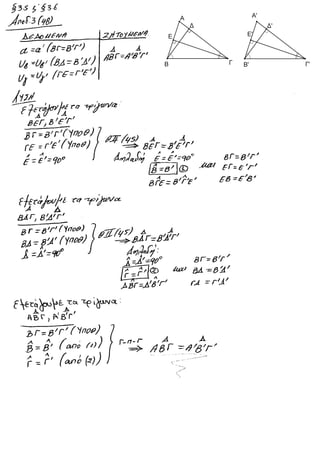 §3.5 & §3.6
Αποδ 3 (48)
ΔΕΔΟΜΕΝΑ ΖΗΤΟΥΜΕΝΑ
α = α' (ΒΓ = Β'Γ') ΑΒΓ = Α'Β'Γ'
υβ = υβ' (ΒΔ = Β'Δ')
υγ = υγ' (ΓΕ = Γ'Ε')
Α Δ Ε Β Γ
Α' Δ' Ε' Β' Γ'
ΛΥΣΗ
Εξετάζουμε τα τρίγωνα
ΒΕΓ, Β'Ε'Γ'
ΒΓ = Β'Γ' (Υποθ)
ΓΕ = Γ'Ε' (Υποθ)
Ê = Ê' = 90°
(45) ⇒ ΒΕΓ = Β'Ε'Γ'
Δηλαδή Ê = Ê' = 90° και ΒΓ = Β'Γ'
B̂ = B̂' ① ΕΓ = Ε'Γ'
ΒΓΕ = Β'Γ'Ε' ΕΒ = Ε'Β'
Εξετάζουμε τα τρίγωνα
ΒΔΓ, Β'Δ'Γ'
ΒΓ = Β'Γ' (Υποθ)
ΒΔ = Β'Δ' (Υποθ)
Δ̂ = Δ̂' = 90°
(45) ⇒ ΒΔΓ = Β'Δ'Γ'
Δηλαδή:
Δ̂ = Δ̂' = 90° ΒΓ = Β'Γ'
Γ̂ = Γ̂' ② και ΒΔ = Β'Δ'
ΔΒΓ = Δ'Β'Γ' ΓΔ = Γ'Δ'
Εξετάζουμε τα τρίγωνα:
ΑΒΓ, Α'Β'Γ'
ΒΓ = Β'Γ' (Υποθ)
B̂ = B̂' (από (1))
Γ̂ = Γ̂' (από (2))
Γ-Π-Γ ⇒ ΑΒΓ = Α'Β'Γ'